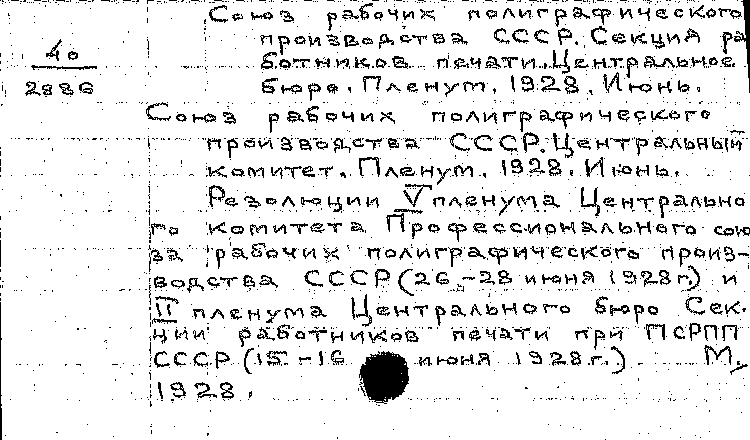 Союз рабочих полиграфического
производства СССР. Секция ра
ботников печати. Центральное
бюро. Пленум. 1928. Июнь.
40
2886
Союз рабочих полиграфического
производства СССР. Центральный
комитет. Пленум. 1928. Июнь.
Резолюции V пленума Центрально
го комитета Профессионального сою
за рабочих полиграфического произ-
водства СССР (26-28 июня 1928 г.) и
II пленума Центрального бюро Сек-
ции работников печати при ПСРПП
СССР (15-16 июня 1928 г.) М.,
1928.